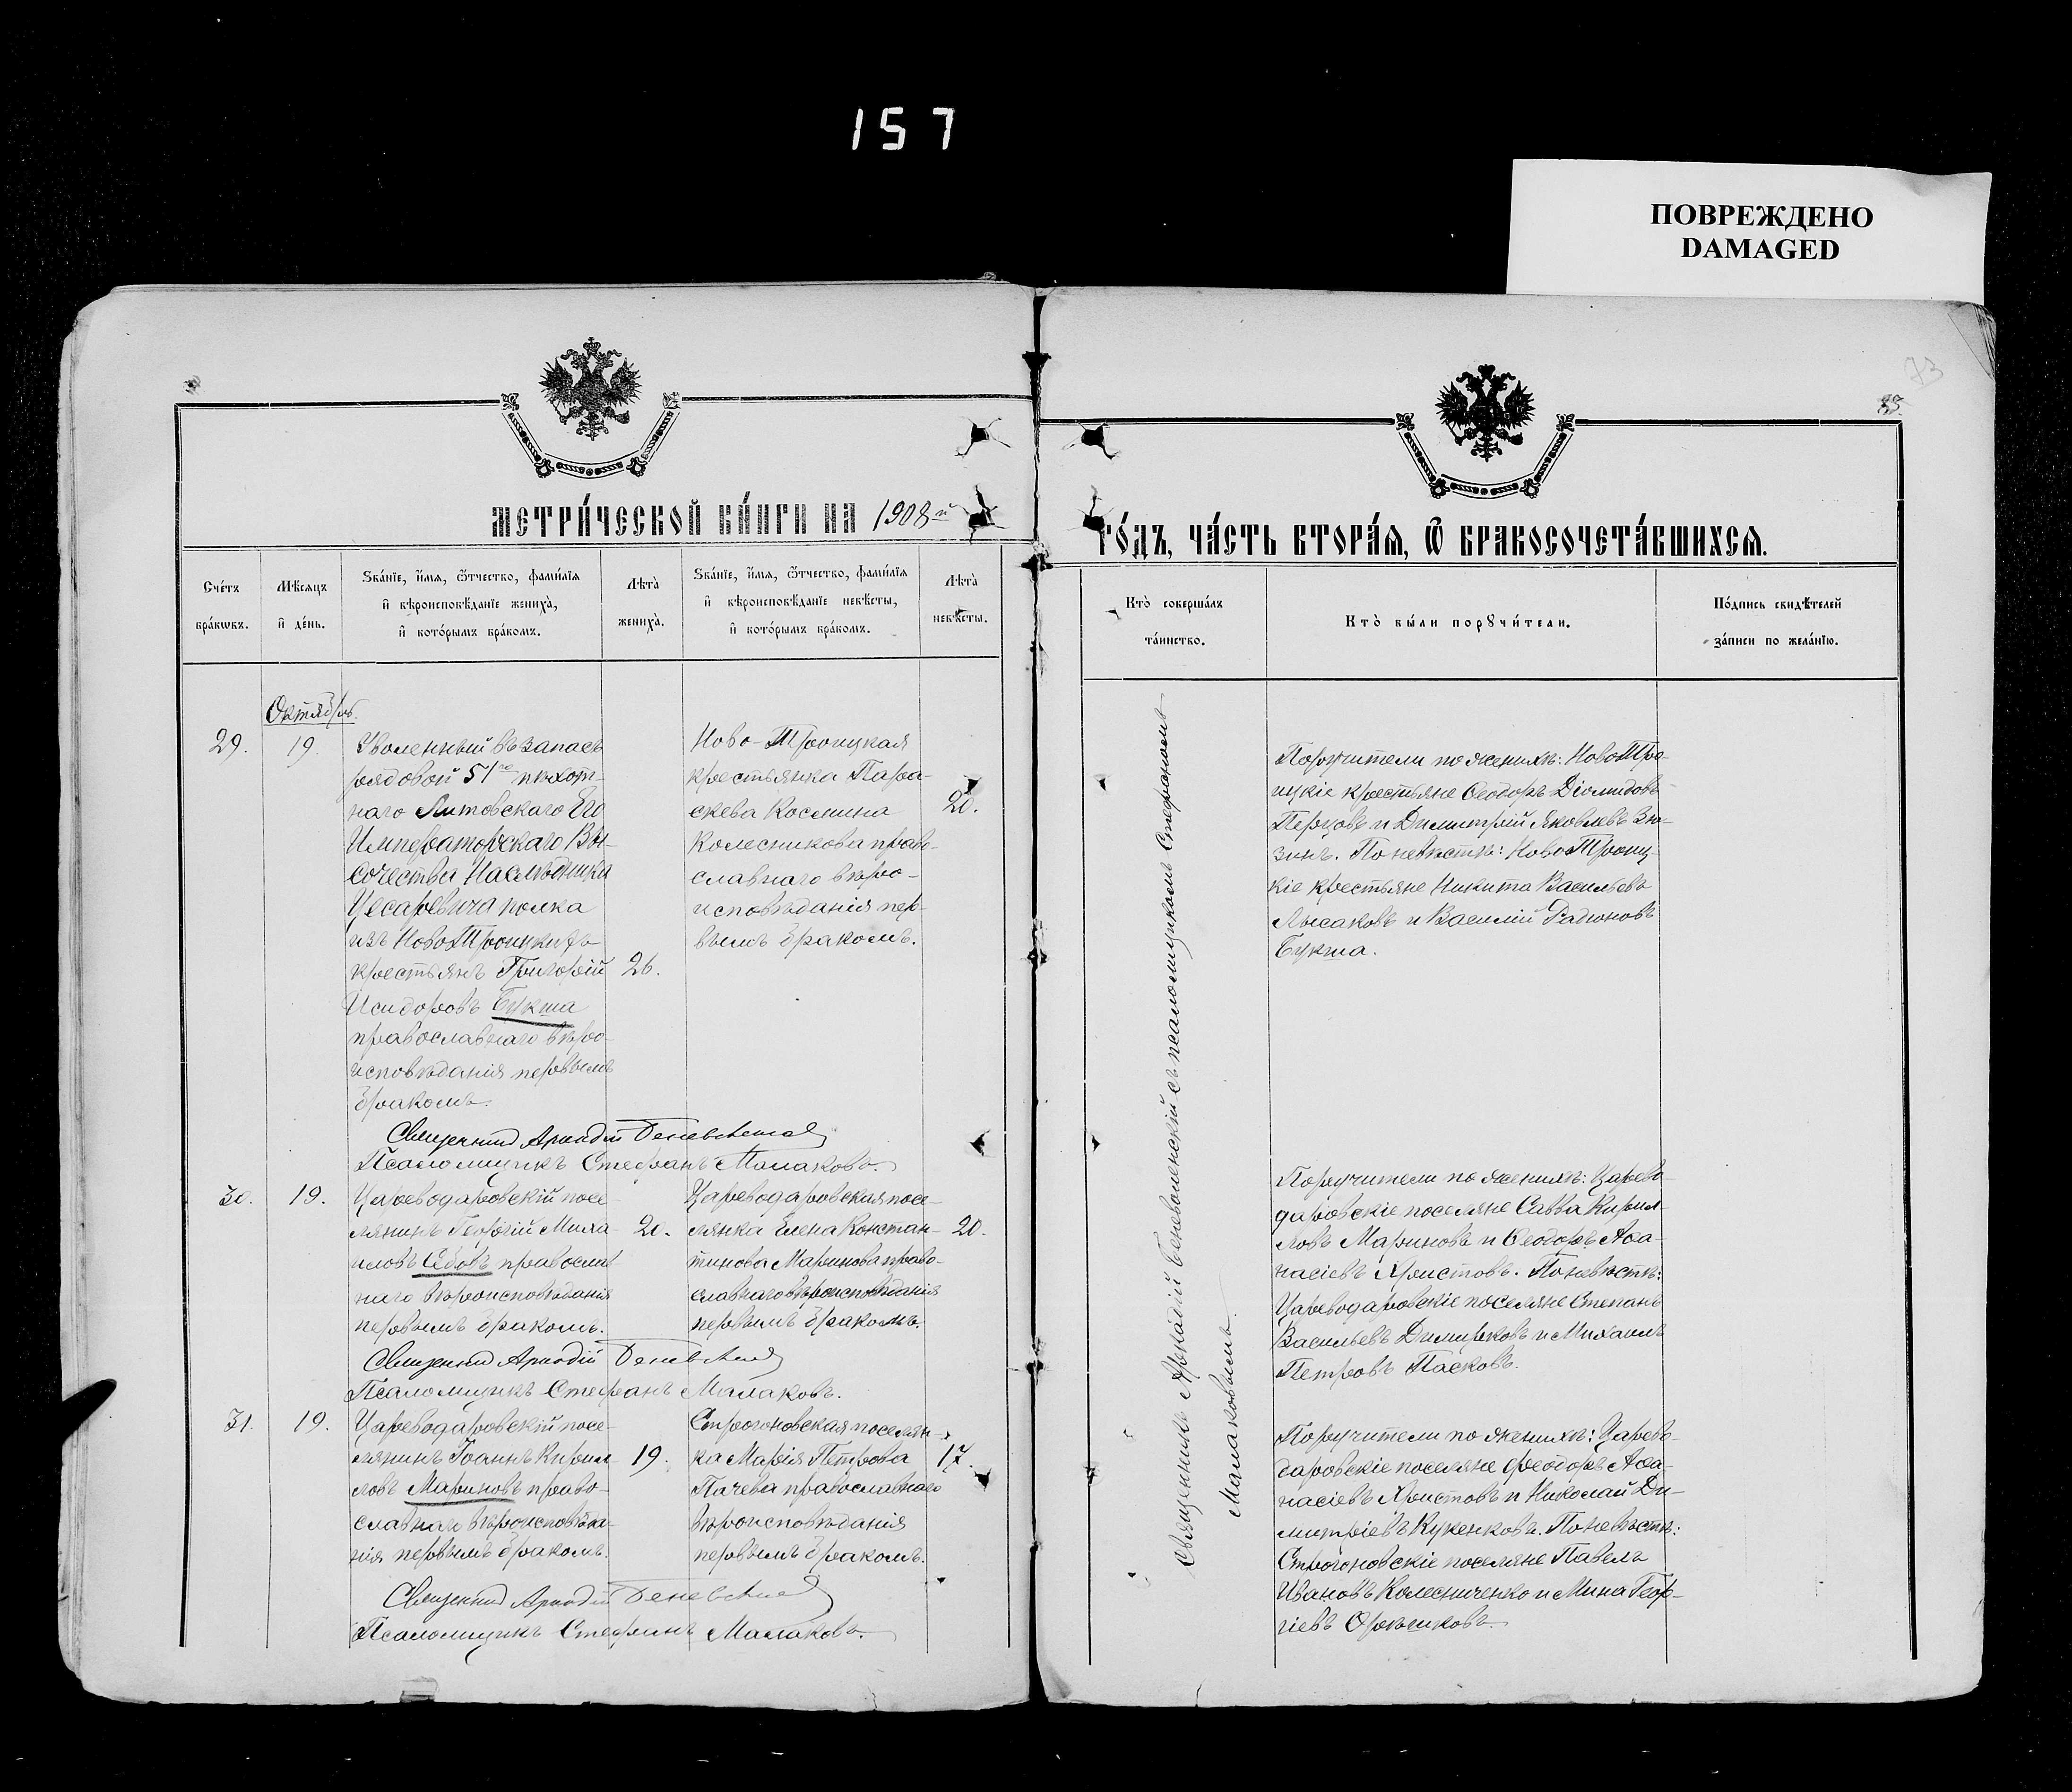 157
ПОВРЕЖДЕНО
DAMAGED
73
МЕТРИ́ЧЕСКОЙ КНИ́ГИ НА 1908й
ГО́ДЪ, ЧА́СТЬ ВТОРА́Ѧ, Ѽ БРАКОСОЧЕТА́ВШИХСѦ.
Сче́тъ бра́кѡвъ.
Мѣ́сѧцъ и҆ де́нь.
Ѕва́нїе, и҆́мѧ, ѻ҆́тчество, фами́лїѧ
и҆ вѣроисповѣ́данїе жениха̀,
и҆ кото́рымъ бра́комъ.
Лѣ́та̀ жениха̀.
Ѕва́нїе, и҆́мѧ, ѻ҆́тчество, фами́лїѧ
и҆ вѣроисповѣ́данїе невѣ́сты,
и҆ кото́рымъ бра́комъ.
Лѣ́та̀ невѣ́сты.
Кто̀ соверша́лъ
та́инство.
Кто̀ бы́ли порꙋчи́тели.
По́дпись свидѣ́телей
за́писи по жела́нїю.
Октябрь.
29.
19.
Уволенный въ запасъ
рядовой 51го пѣхот-
наго Литовскаго Его
Императорскаго Вы-
сочества Наслѣдника
Цесаревича полка
изъ Ново Троицкихъ
крестьянъ Григорій
Исидоровъ Букша
православнаго вѣро-
исповѣданія первымъ
бракомъ.
26.
Ново-Троицкая
крестьянка Пара-
скева Космина
Колесникова право-
славнаго вѣро-
исповѣданія пер-
вымъ бракомъ.
20.
Поручители по женихѣ: Ново Тро-
ицкіе крестьяне Ѳеодоръ Діомидовъ
Перцовъ и Димитрій Яковлевъ Зю-
зинъ. По невѣстѣ: Ново Троиц-
кіе крестьяне Никита Васильевъ
Лысаковъ и Василій Радионовъ
Букша.
Священникъ Аркадій Беневоленскій
Псаломщикъ Стефанъ Малаковъ.
30.
19.
Цареводаровскій посе-
лянинъ Георгій Миха-
иловъ Себовъ православ-
наго вѣроисповѣданія
первымъ бракомъ.
20.
Цареводаровская посе-
лянка Елена Констан-
тинова Маринова право-
славнаго вѣроисповѣданія
первымъ бракомъ.
20.
Поручители по женихѣ: Царево-
даровскіе поселяне Савва Кирил-
ловъ Мариновъ и Ѳеодоръ Аѳа-
насіевъ Христовъ. По невѣстѣ:
Цареводаровскіе поселяне Степанъ
Васильевъ Димирковъ и Михаилъ
Петровъ Пасковъ.
Священникъ Аркадій Беневоленскій
Псаломщикъ Стефанъ Малаковъ.
31.
19.
Цареводаровскій посе-
лянинъ Іоаннъ Кирил-
ловъ Мариновъ право-
славнаго вѣроисповѣда-
нія первымъ бракомъ.
19.
Строгоновская поселян-
ка Марія Петрова
Пачева православнаго
вѣроисповѣданія
первымъ бракомъ.
17.
Поручители по женихѣ: Царево-
даровскіе поселяне Ѳеодоръ Аѳа-
насіевъ Христовъ и Николай Ди-
митріевъ Кукенковъ. По невѣстѣ:
Строгоновскіе поселяне Павелъ
Ивановъ Колесниченко и Мина Геор-
гіевъ
Священникъ Аркадій Беневоленскій
Псаломщикъ Стефанъ Малаковъ.
Священникъ Аркадій Беневоленскій съ псаломщикомъ Стефаномъ
Малаковымъ.